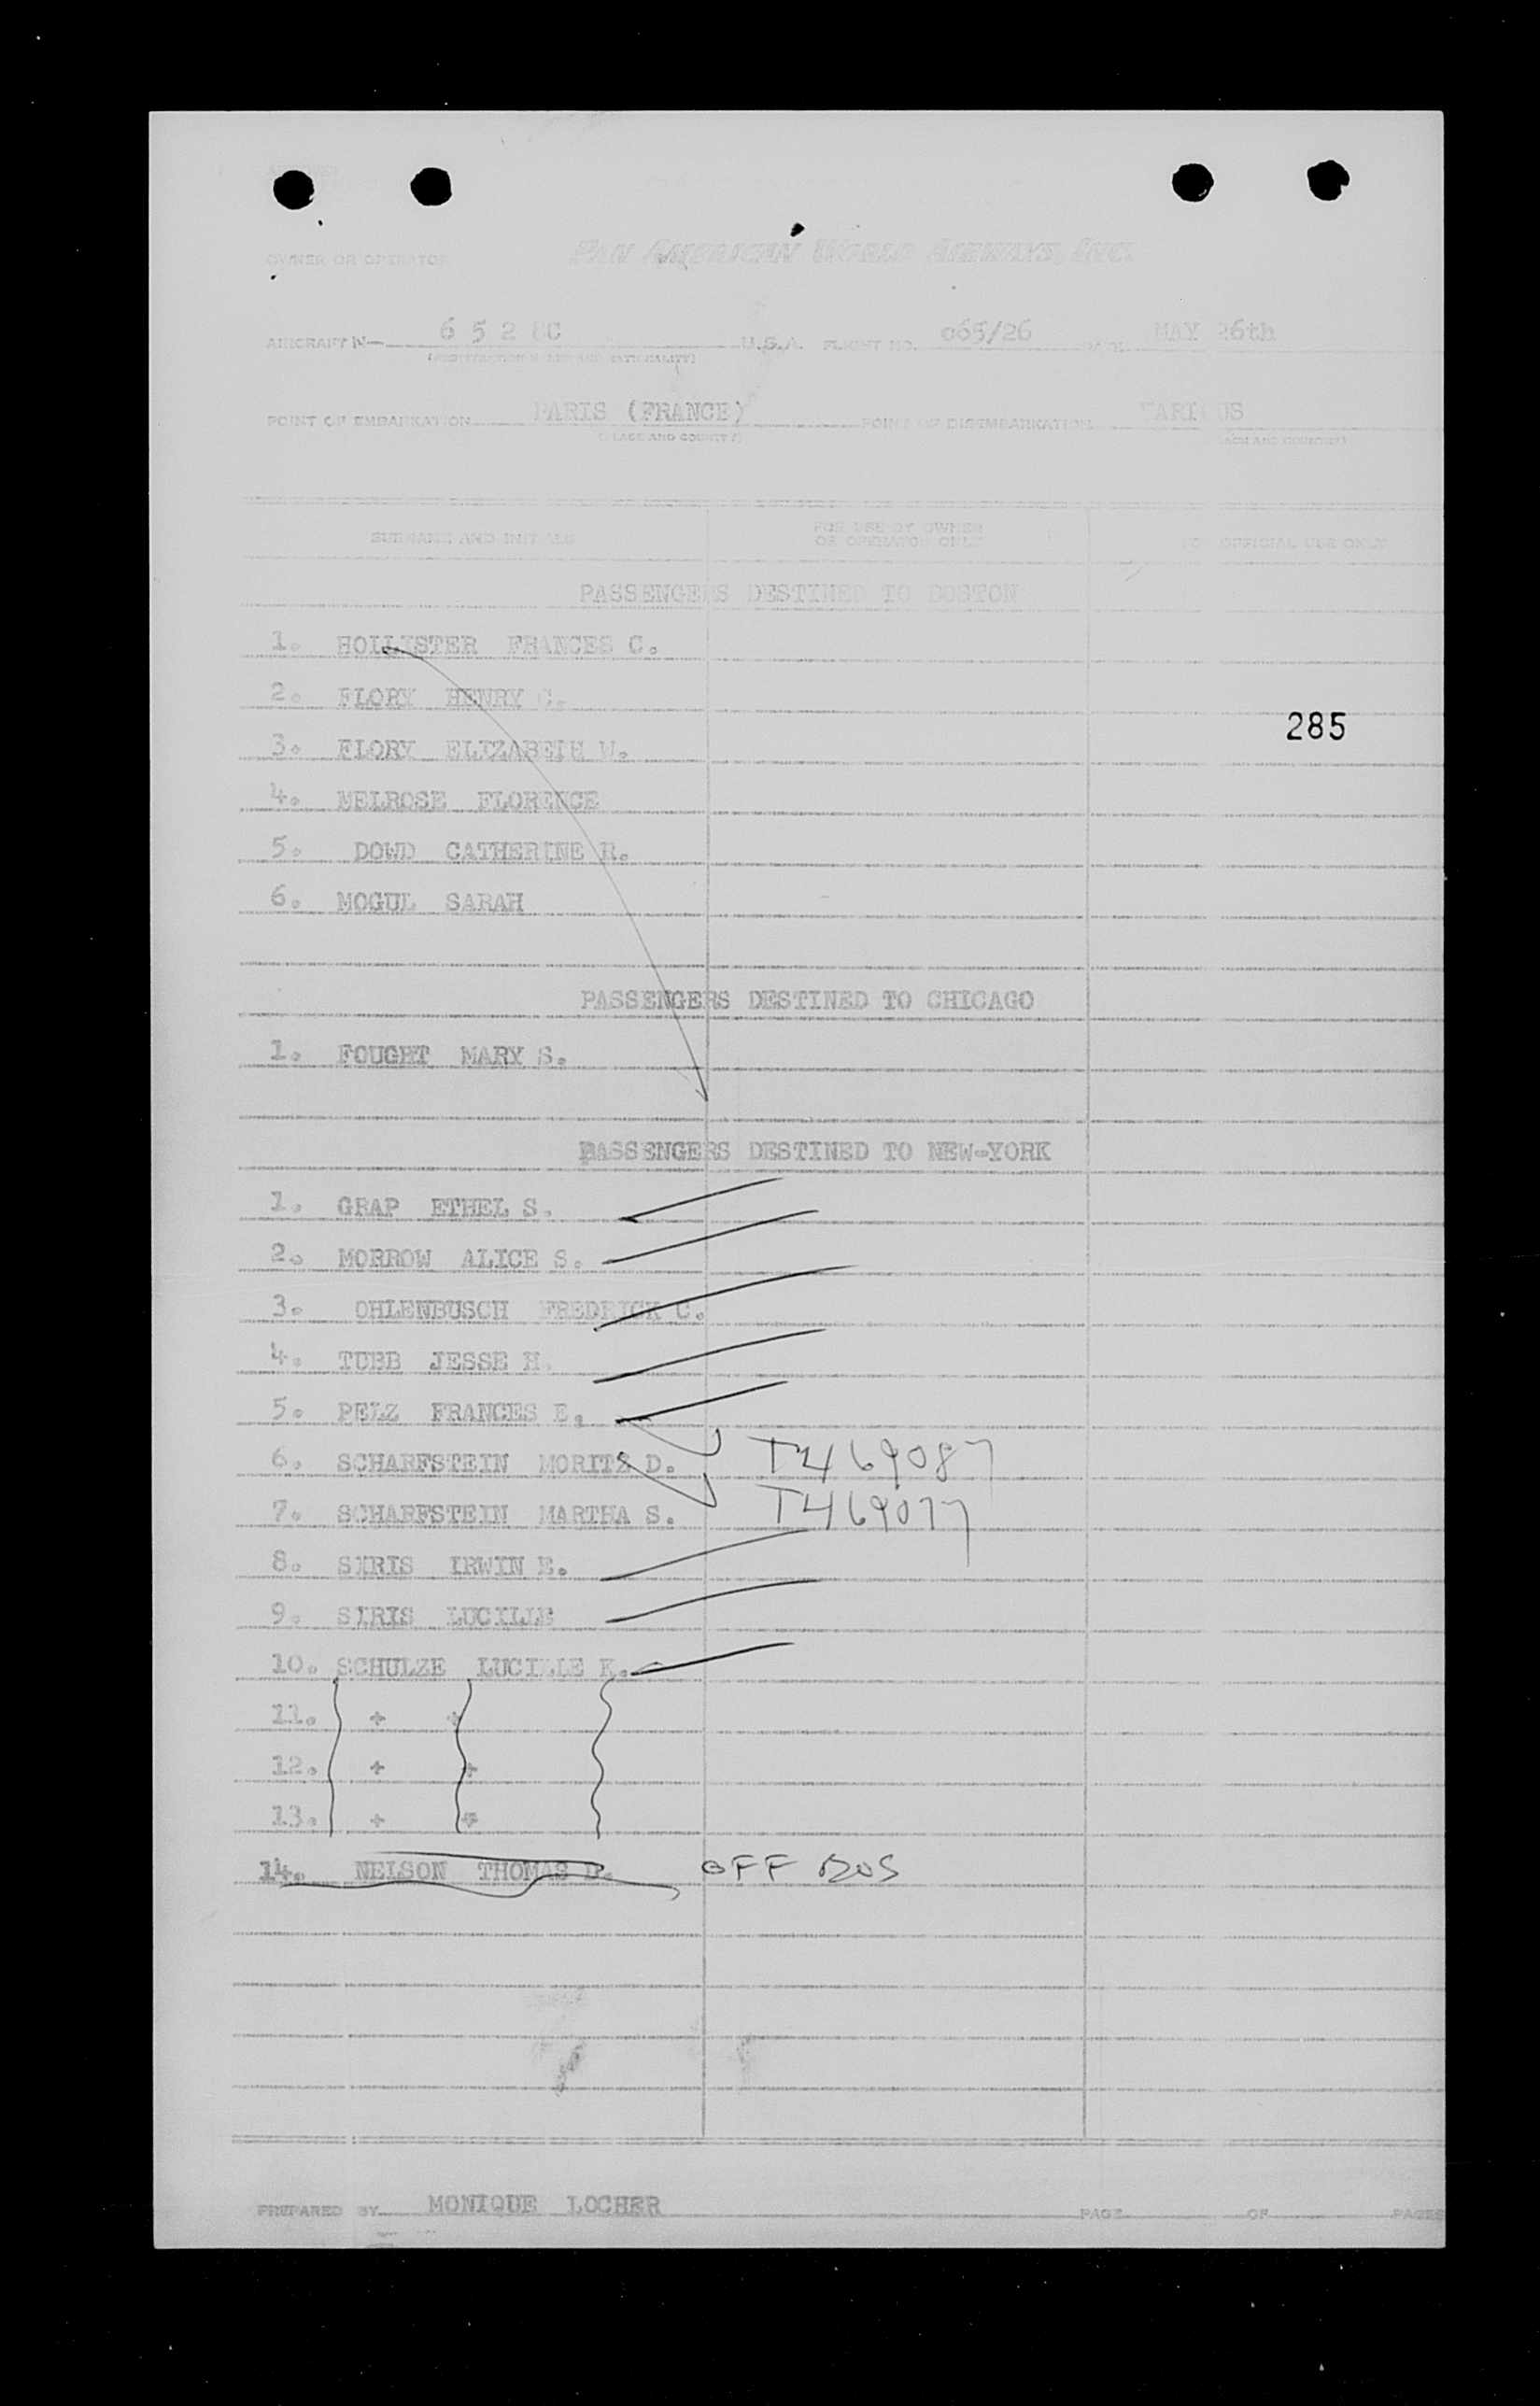 OWNER OR OPERATOR PAN AMERICAN WORLD AIRWAYS, INC.
AIRCRAFT N— 6 5 2 8C U.S.A. FLIGHT NO. 065/26 DATE MAY 26th
(REGISTRATION MARKS AND NATIONALITY)
POINT OF EMBARKATION PARIS (FRANCE) POINT OF DISEMBARKATION VARIOUS
(PLACE AND COUNTRY) (PLACE AND COUNTRY)
SURNAME AND INITIALS FOR USE BY OWNER OR OPERATOR ONLY FOR OFFICIAL USE ONLY
PASSENGERS DESTINED TO BOSTON
1. HOLLISTER FRANCES C.
2. FLORY HENRY C.
285
3. FLORY ELIZABETH W.
4. MELROSE FLORENCE
5. DOWD CATHERINE R.
6. MOGUL SARAH
PASSENGERS DESTINED TO CHICAGO
1. FOUGHT MARY S.
PASSENGERS DESTINED TO NEW-YORK
1. GRAP ETHEL S.
2. MORROW ALICE S.
3. OHLENBUSCH FREDRICK C.
4. TUBB JESSE H.
5. PELZ FRANCES E.
6. SCHARFSTEIN MORITZ D. T469087
7. SCHARFSTEIN MARTHA S. T469077
8. SIRIS IRWIN E.
9. SIRIS LUCILLE
10. SCHULZE LUCILLE K.
11. + +
12. + +
13. + +
14. NELSON THOMAS D. OFF BOS
PREPARED BY MONIQUE LOCHER PAGE OF PAGES